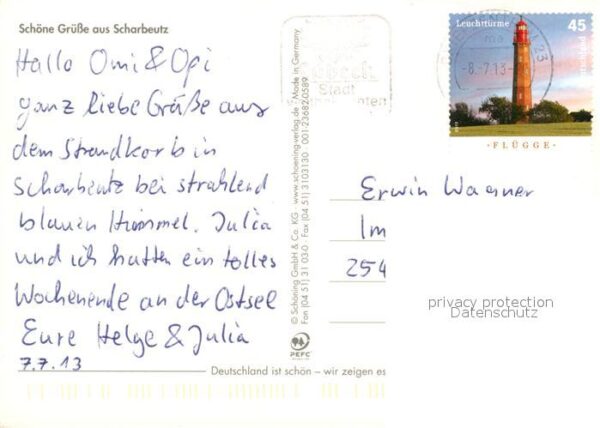 Schöne Grüße aus Scharbeutz
Hallo Omi & Opi
ganz liebe Grüße aus
dem Strandkorb in
Scharbeutz bei strahlend
blauen Himmel. Julia
und ich hatten ein tolles
Wochenende an der Ostsee
Eure Helge & Julia
7.7.13
Deutschland ist schön – wir zeigen es
© Schöning GmbH & Co. KG · www.schoening-verlag.de · Made in Germany
Fon (04 51) 31 03-0 · Fax (04 51) 3103130 · 001-23682.0589
PEFC
Stadt
Leuchttürme 45
-8.-7.13
23
FLÜGGE
Erwin Wagner
Im
254
privacy protection
Datenschutz